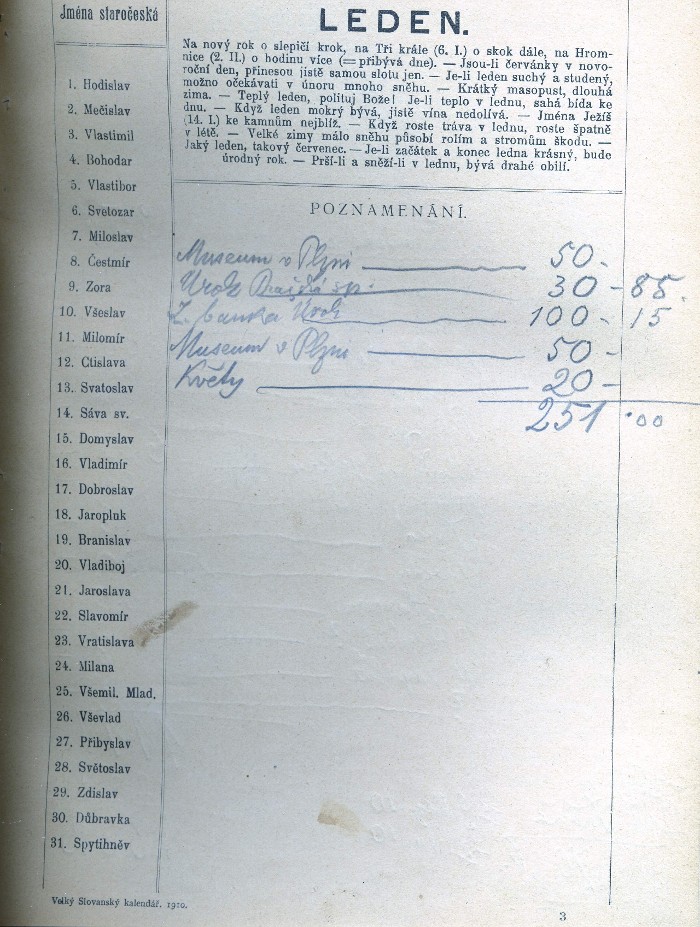 Jména staročeská
1. Hodislav
2. Mečislav
3. Vlastimil
4. Bohodar
5. Vlastibor
6. Svetozar
7. Miloslav
8. Čestmír
9. Zora
10. Všeslav
11. Milomír
12. Ctislava
13. Svatoslav
14. Sáva sv.
15. Domyslav
16. Vladimír
17. Dobroslav
18. Jaropluk
19. Branislav
20. Vladiboj
21. Jaroslava
22. Slavomír
23. Vratislava
24. Milana
25. Všemil. Mlad.
26. Vševlad
27. Přibyslav
28. Světoslav
29. Zdislav
30. Důbravka
31. Spytihněv
LEDEN.
Na nový rok o slepičí krok, na Tři krále (6. I.) o skok dále, na Hrom-
nice (2. II.) o hodinu více (= přibývá dne). — Jsou-li červánky v novo-
roční den, přinesou jistě samou slotu jen. — Je-li leden suchý a studený,
možno očekávati v únoru mnoho sněhu. — Krátký masopust, dlouhá
zima. — Teplý leden, polituj Bože! Je-li teplo v lednu, sahá bída ke
dnu. — Když leden mokrý bývá, jistě vína nedolívá. — Jména Ježíš
(14. I.) ke kamnům nejblíž. — Když roste tráva v lednu, roste špatně
v létě. — Velké zimy málo sněhu působí rolím a stromům škodu. —
Jaký leden, takový červenec. — Je-li začátek a konec ledna krásný, bude
úrodný rok. — Prší-li a sněží-li v lednu, bývá drahé obilí.
POZNAMENÁNÍ.
Museum v Plzni — 50 -
Úrok sp. — 30 - 85
banka Úrok — 100 - 15
Museum v Plzni — 50 -
Květy — 20 -
251 . 00
Velký Slovanský kalendář. 1910.
3